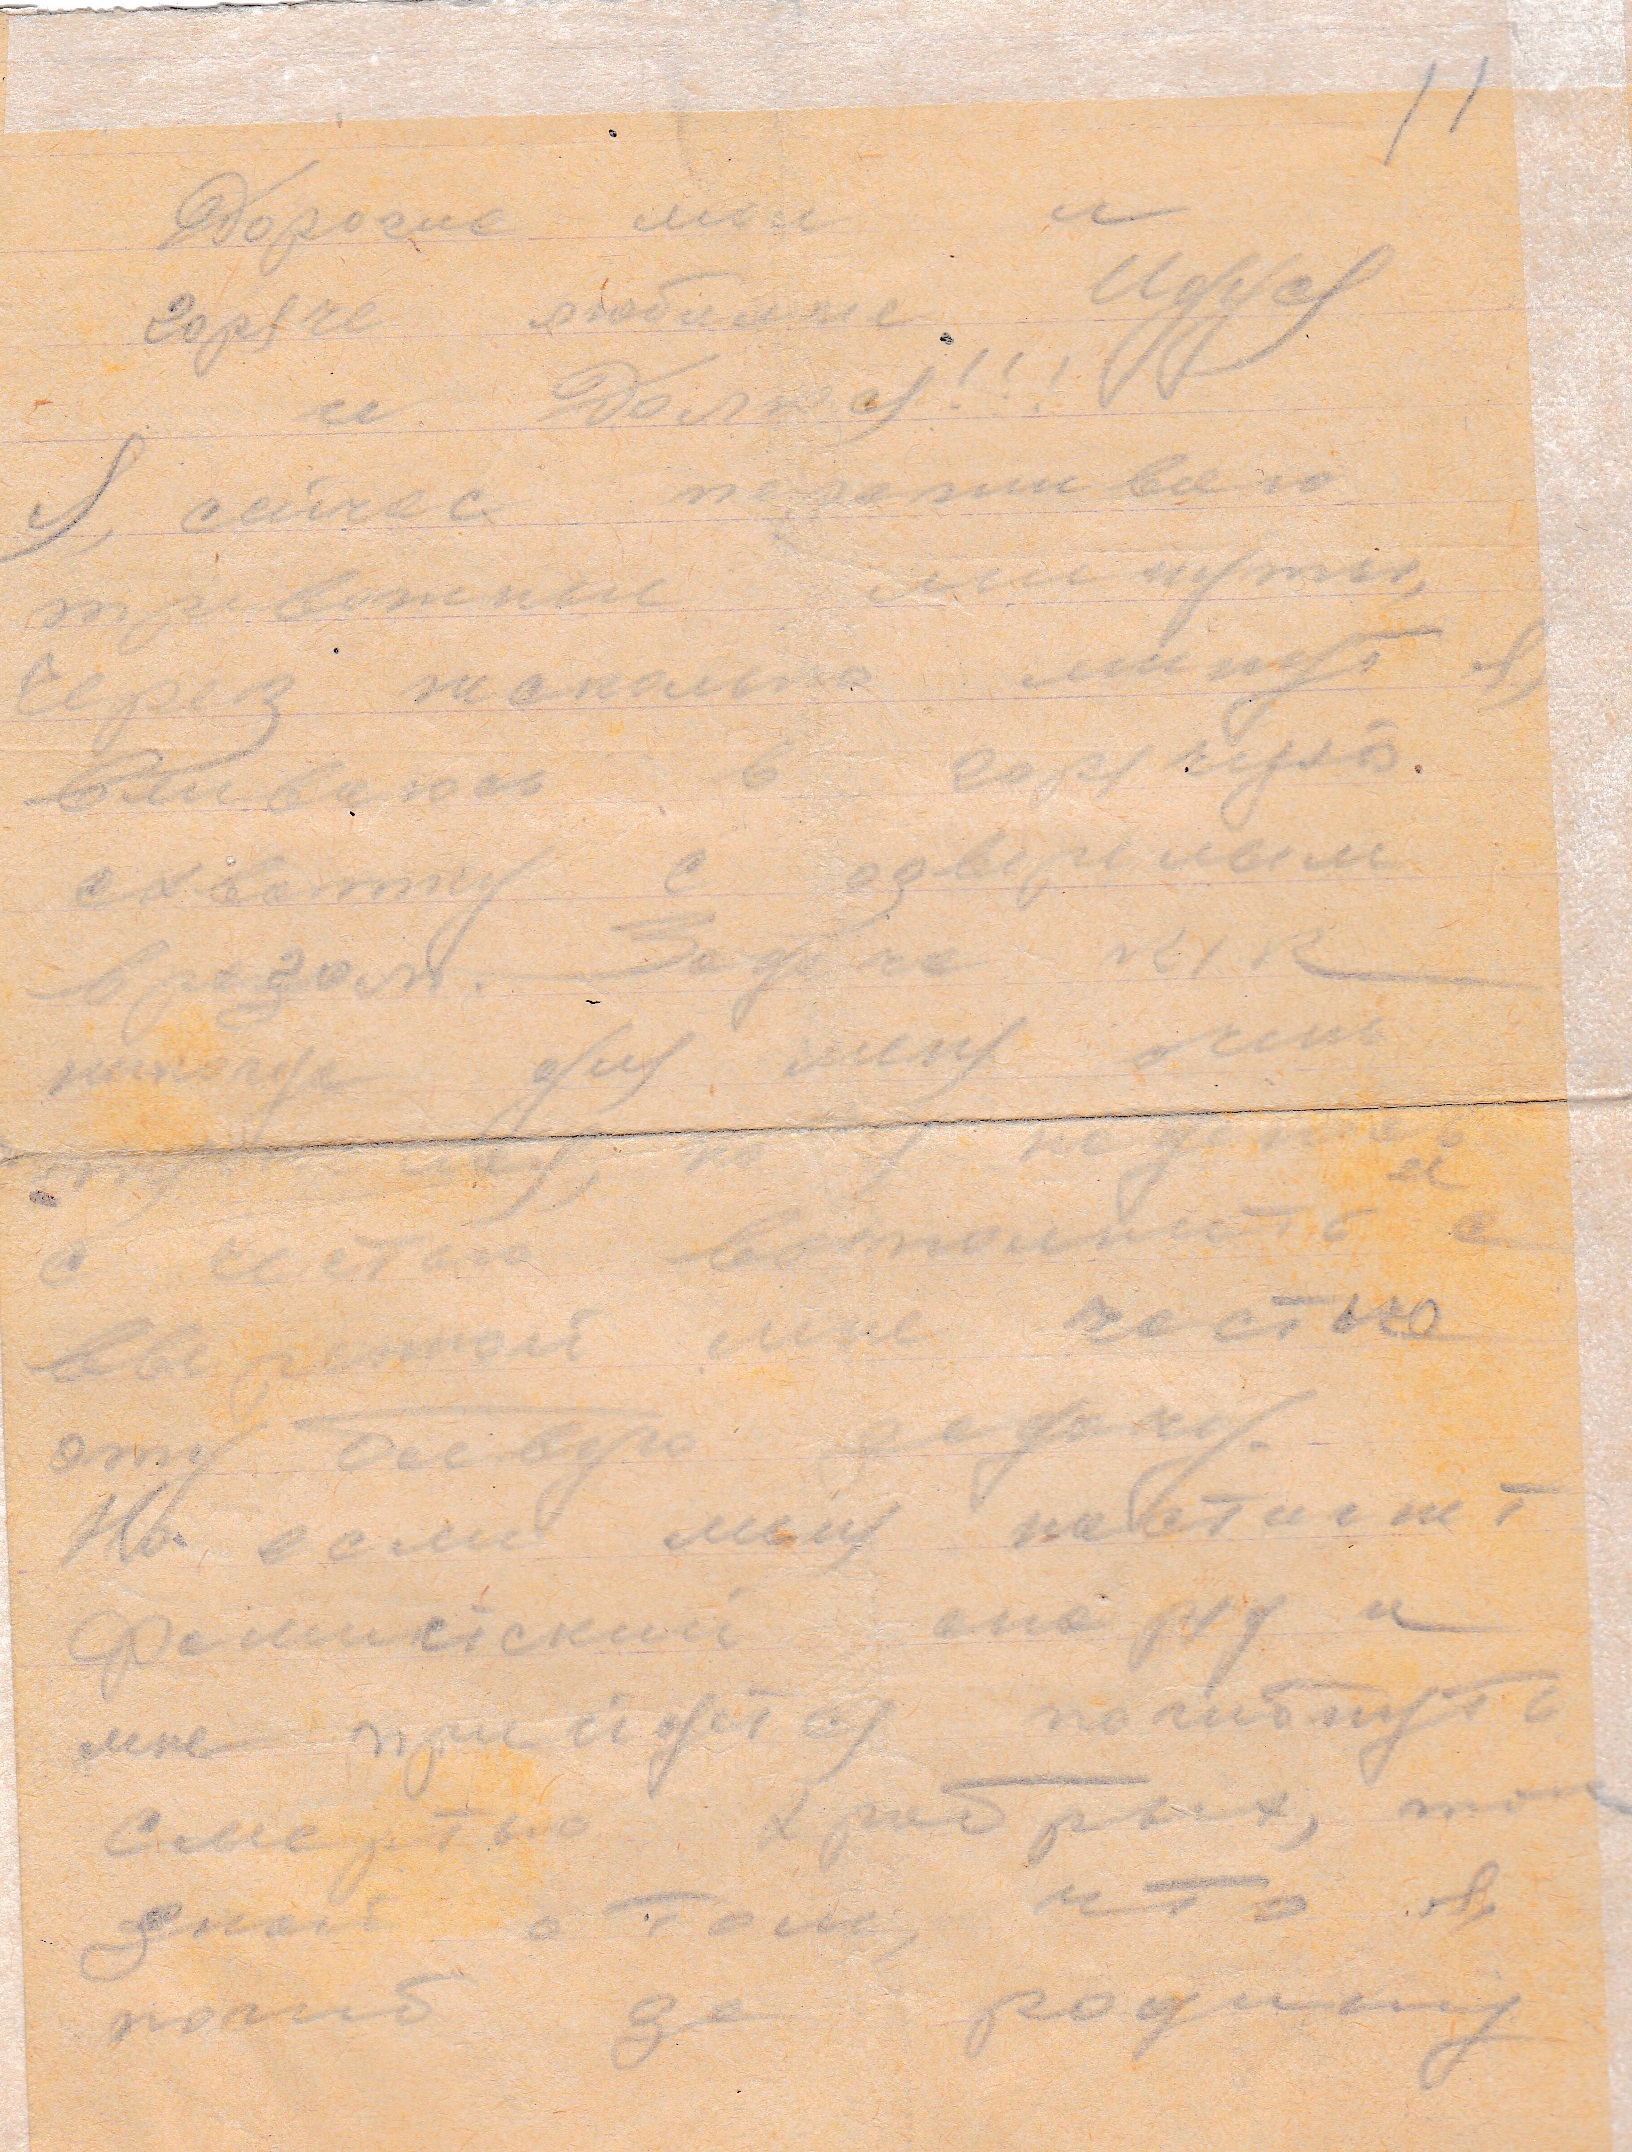 11
Дорогие мои и
горяче любимые Идуся
и Долися!!!
Я, сейчас переживаю
тревожные минуты,
Через несколько минут я,
вливаюсь в горячую
схватку с озверелым
врагом. Задача как
никогда для меня очень
но я надеюсь
с честью выполнить с
вверенной мне частью
эту боевую задачу.
Но если меня настигнет
фашистский снаряд и
мне прийдется погибнуть
смертью храбрых, то
знай о том, что я,
погиб за родину